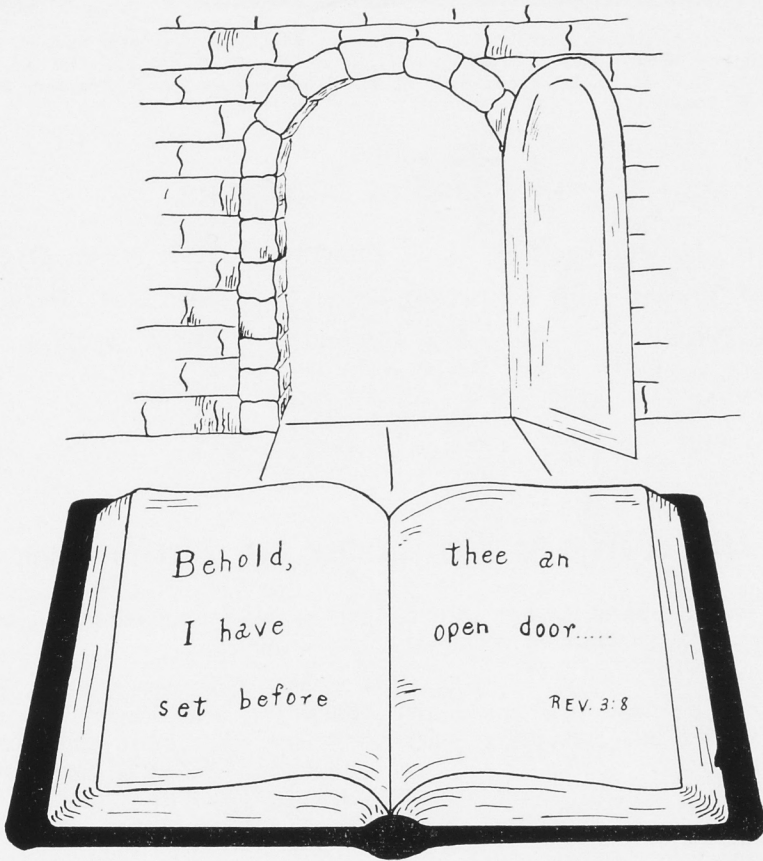 Behold,
I have
set before
thee an
open door.....
REV. 3:8